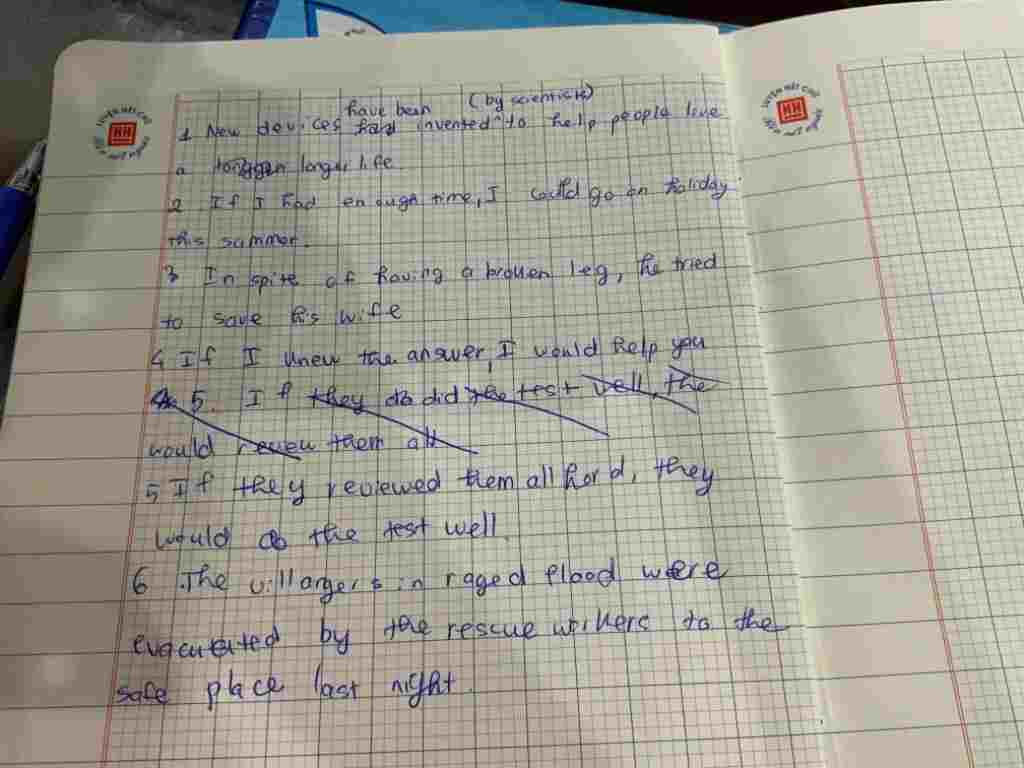 have been (by scientists)
1 New devices had invented to help people live
a longer life
2 If I had enough time, I could go on holiday
this summer.
3 In spite of having a broken leg, he tried
to save his wife
4 If I knew the answer, I would help you
5. If they do did the test well, the
would review them all
5 If they reviewed them all hard, they
would do the test well.
6 The villargers in raged flood were
evacuated by the rescue workers to the
safe place last night.
HH
HH